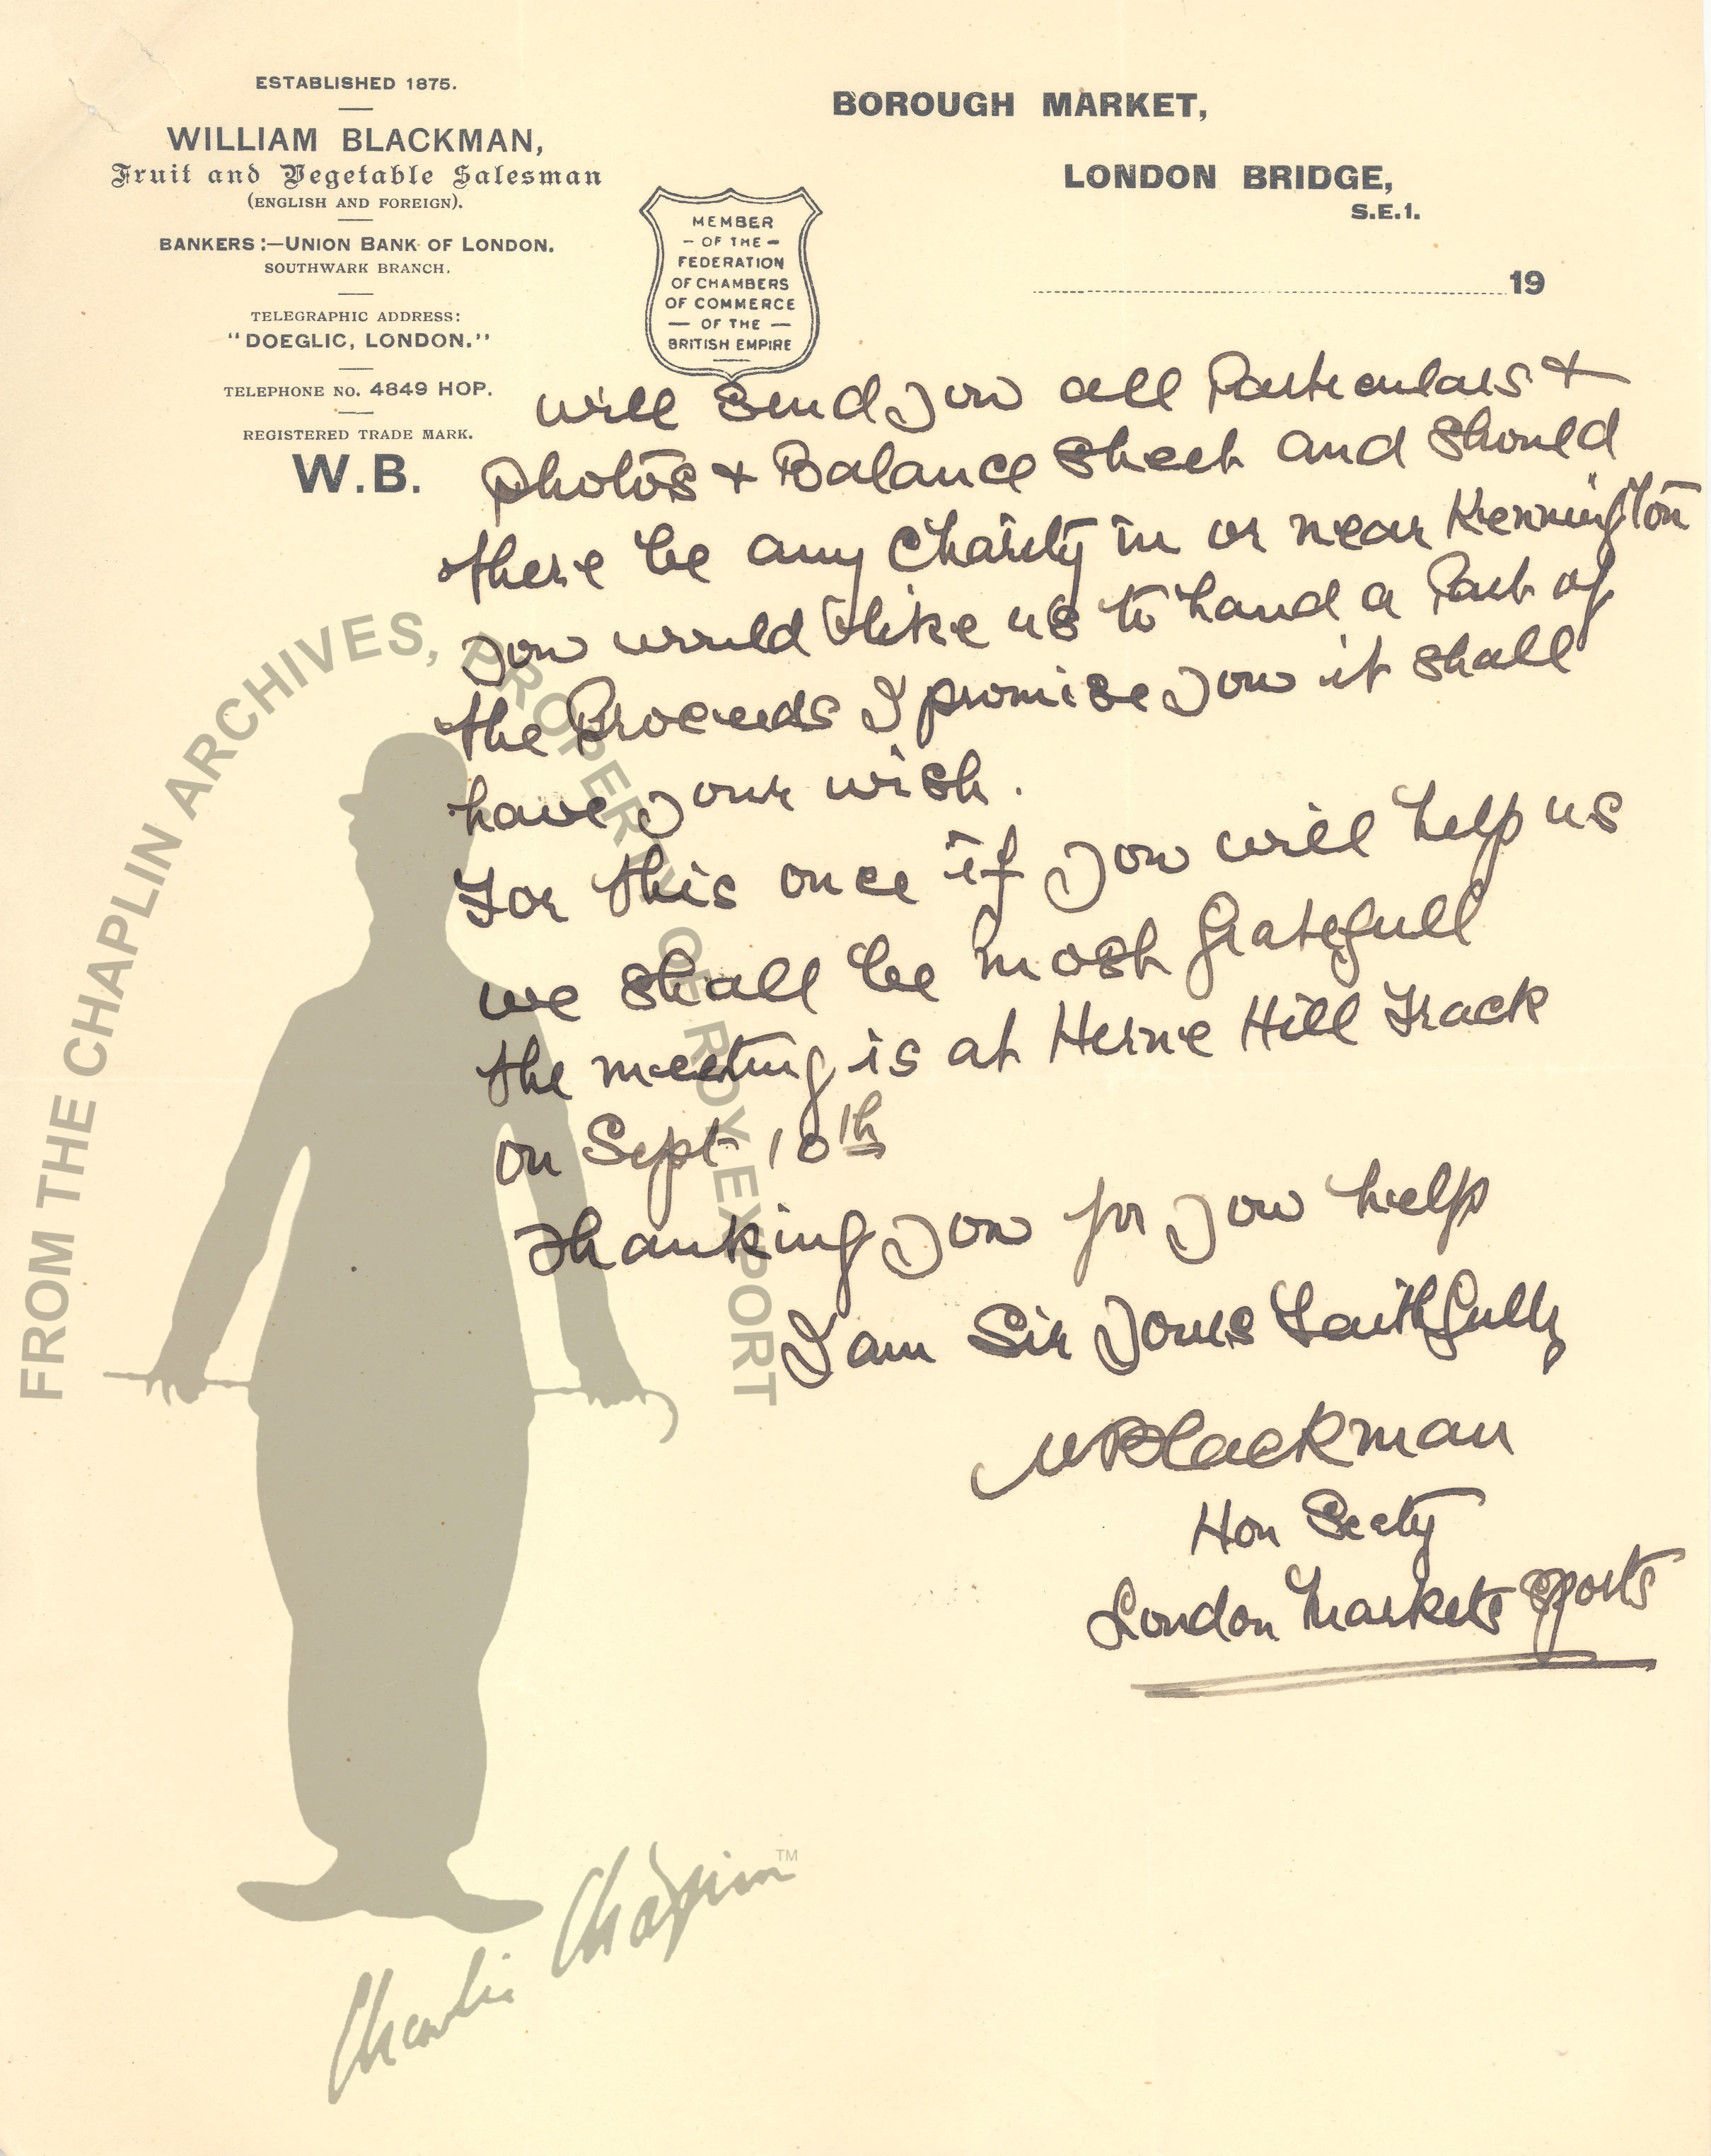 ESTABLISHED 1875.
WILLIAM BLACKMAN,
Fruit and Vegetable Salesman
(ENGLISH AND FOREIGN).
BANKERS:—UNION BANK OF LONDON.
SOUTHWARK BRANCH.
TELEGRAPHIC ADDRESS:
"DOEGLIC, LONDON."
TELEPHONE NO. 4849 HOP.
REGISTERED TRADE MARK.
W.B.
MEMBER
– OF THE –
FEDERATION
OF CHAMBERS
OF COMMERCE
— OF THE —
BRITISH EMPIRE
BOROUGH MARKET,
LONDON BRIDGE,
S.E.1.
19
will send you all Particulars +
photos + Balance sheet and should
there be any Charity in or near Kennington
you would like us to hand a Part of
the Proceeds I promise you it shall
have your wish.
For this once if you will help us
we shall be most gratefull
the meeting is at Herne Hill Track
on Sept 10th
Thanking you for you help
I am Sir Yours Faithfully
W Blackman
Hon Secty
London Markets Sports
FROM THE CHAPLIN ARCHIVES, PROPERTY OF ROY EXPORT
Charlie Chaplin TM